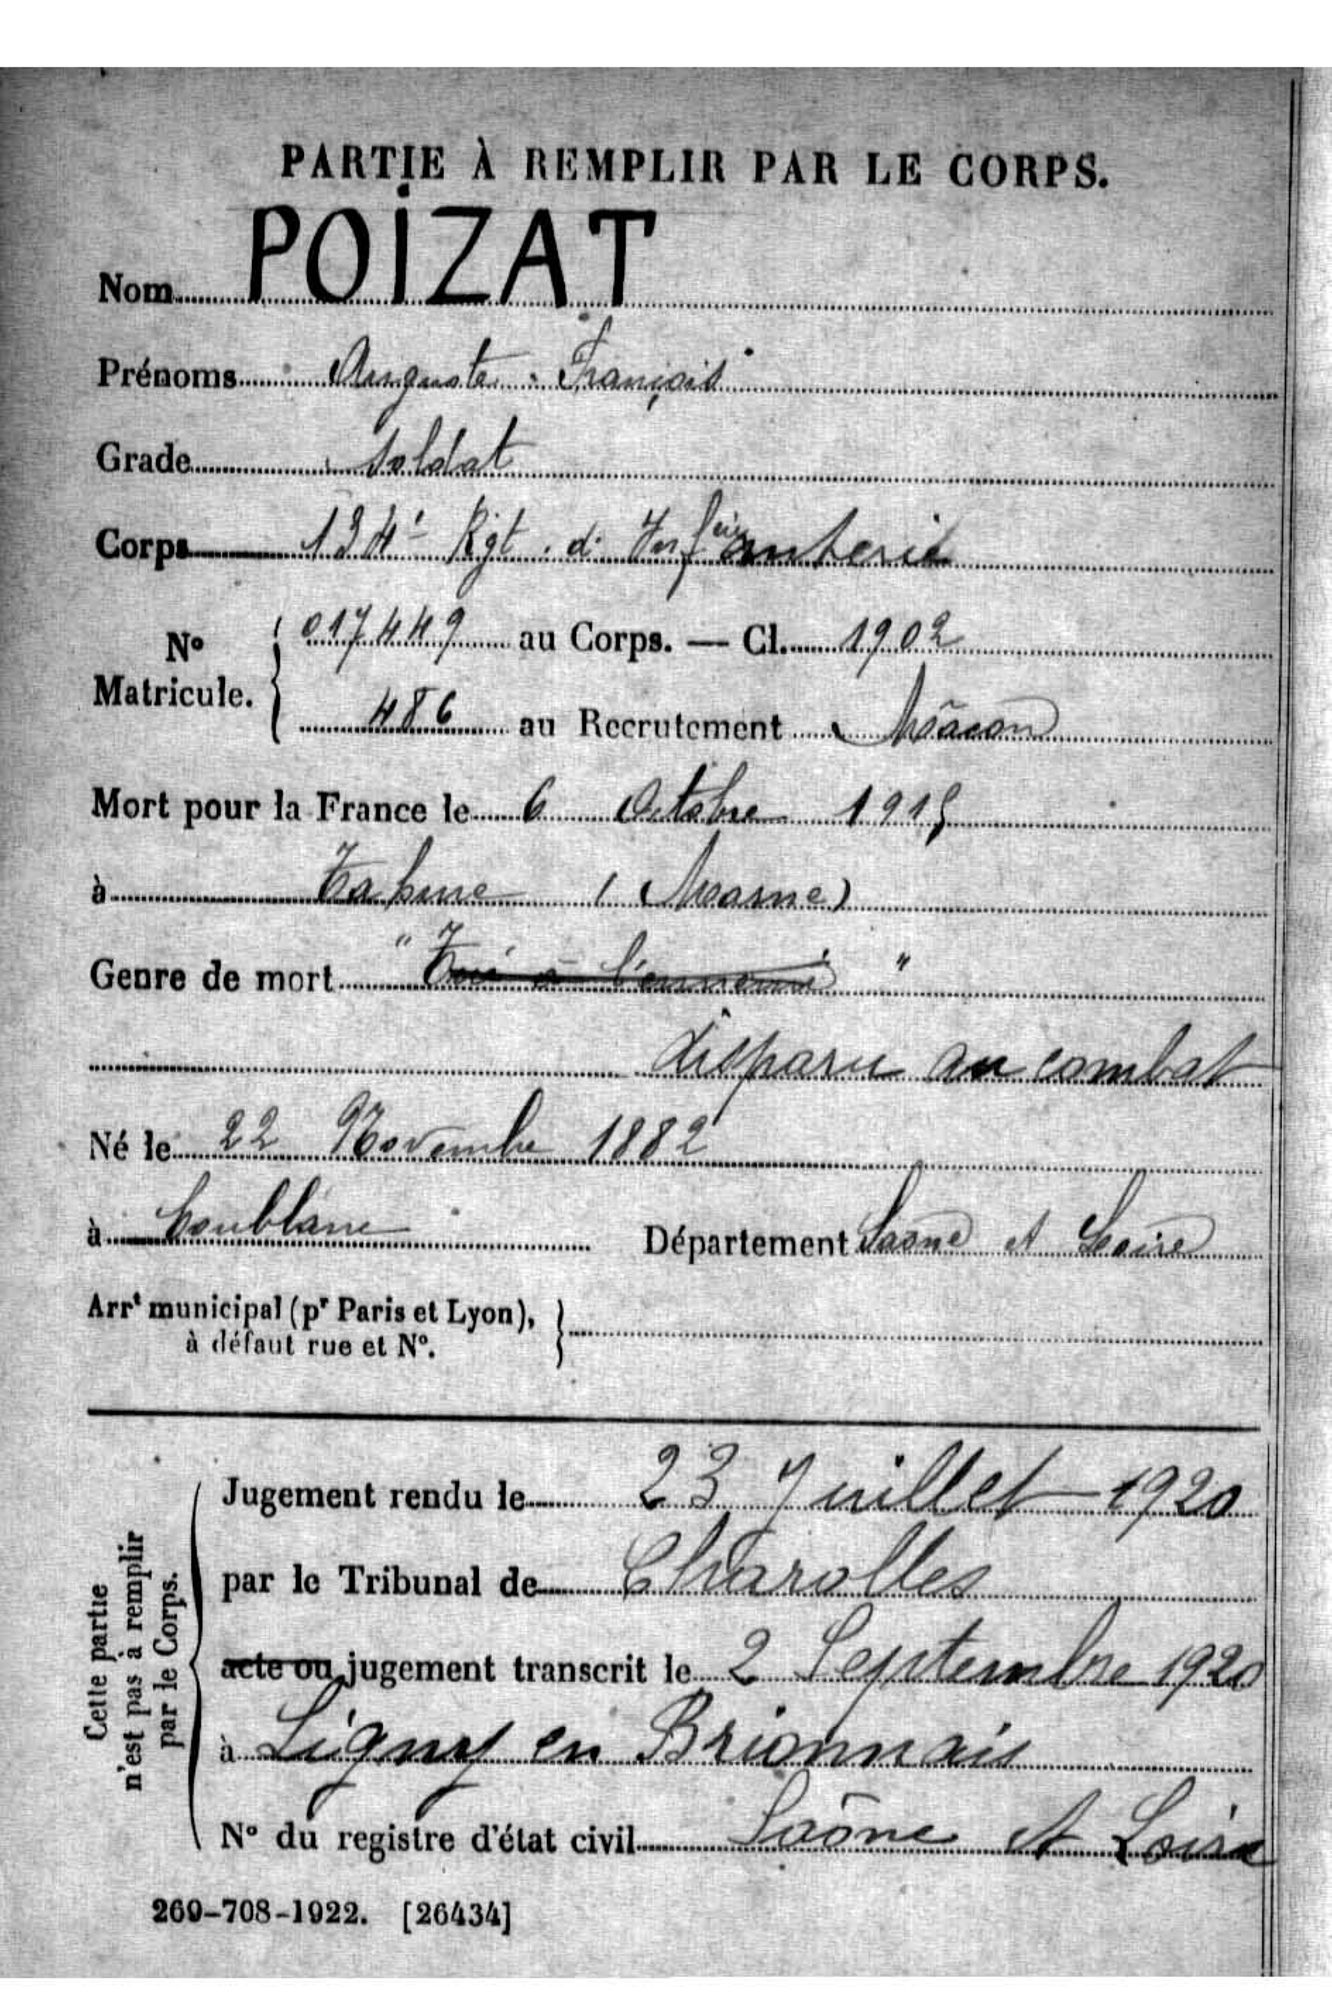 PARTIE À REMPLIR PAR LE CORPS.
Nom POIZAT
Prénoms Auguste François
Grade soldat
Corps 134e Rgt d'Infanterie
No Matricule. 017449 au Corps. — Cl. 1902
486 au Recrutement Mâcon
Mort pour la France le 6 Octobre 1915
à Tahure (Marne)
Genre de mort " Tué à l'ennemi "
disparu au combat
Né le 22 Novembre 1882
à Coublanc Département Saône et Loire
Arrt municipal (pr Paris et Lyon),
à défaut rue et No.
Cette partie
n'est pas à remplir
par le Corps.
Jugement rendu le 23 Juillet 1920
par le Tribunal de Charolles
acte ou jugement transcrit le 2 Septembre 1920
à Ligny en Brionnais
No du registre d'état civil Saône et Loire
269-708-1922. [26434]